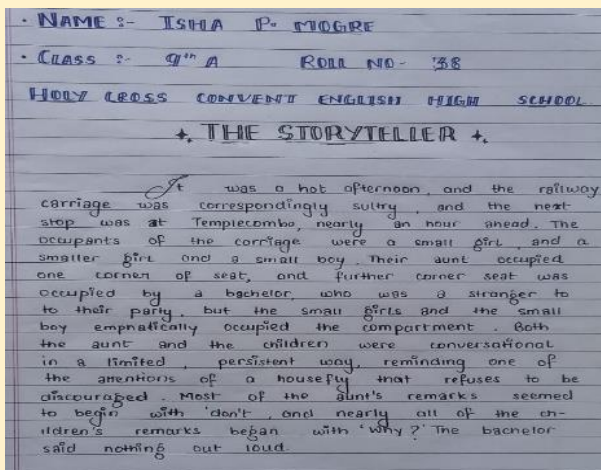 · NAME :- ISHA P. MOGRE
· CLASS :- 9th A ROLL NO - 38
HOLY CROSS CONVENT ENGLISH HIGH SCHOOL
THE STORYTELLER
It was a hot afternoon, and the railway
carriage was correspondingly sultry, and the next
stop was at Templecombe, nearly an hour ahead. The
occupants of the carriage were a small girl, and a
smaller girl and a small boy. Their aunt occupied
one corner of seat, and further corner seat was
occupied by a bachelor, who was a stranger to
to their party, but the small girls and the small
boy emphatically occupied the compartment. Both
the aunt and the children were conversational
in a limited, persistent way, reminding one of
the attentions of a housefly that refuses to be
discouraged. Most of the aunt's remarks seemed
to begin with 'don't', and nearly all of the ch-
ildren's remarks began with 'Why?' The bachelor
said nothing out loud.